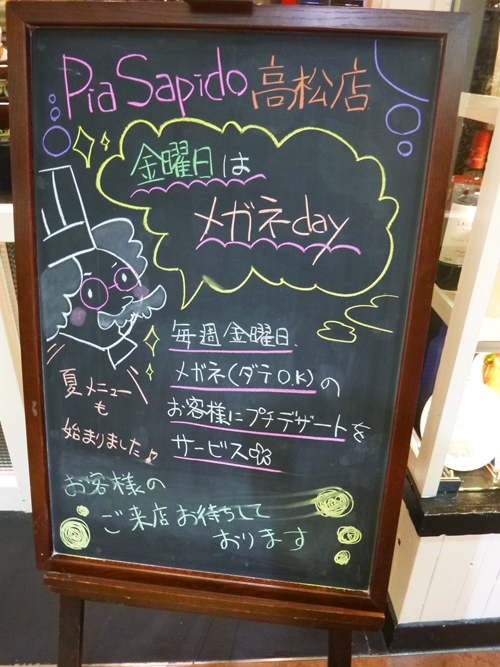 Pia Sapido 高松店
金曜日は
メガネday
毎週金曜日、
メガネ(ダテO.K)の
お客様にプチデザートを
サービス
夏メニュー
も
始まりました♪
お客様の
ご来店お待ちして
おります